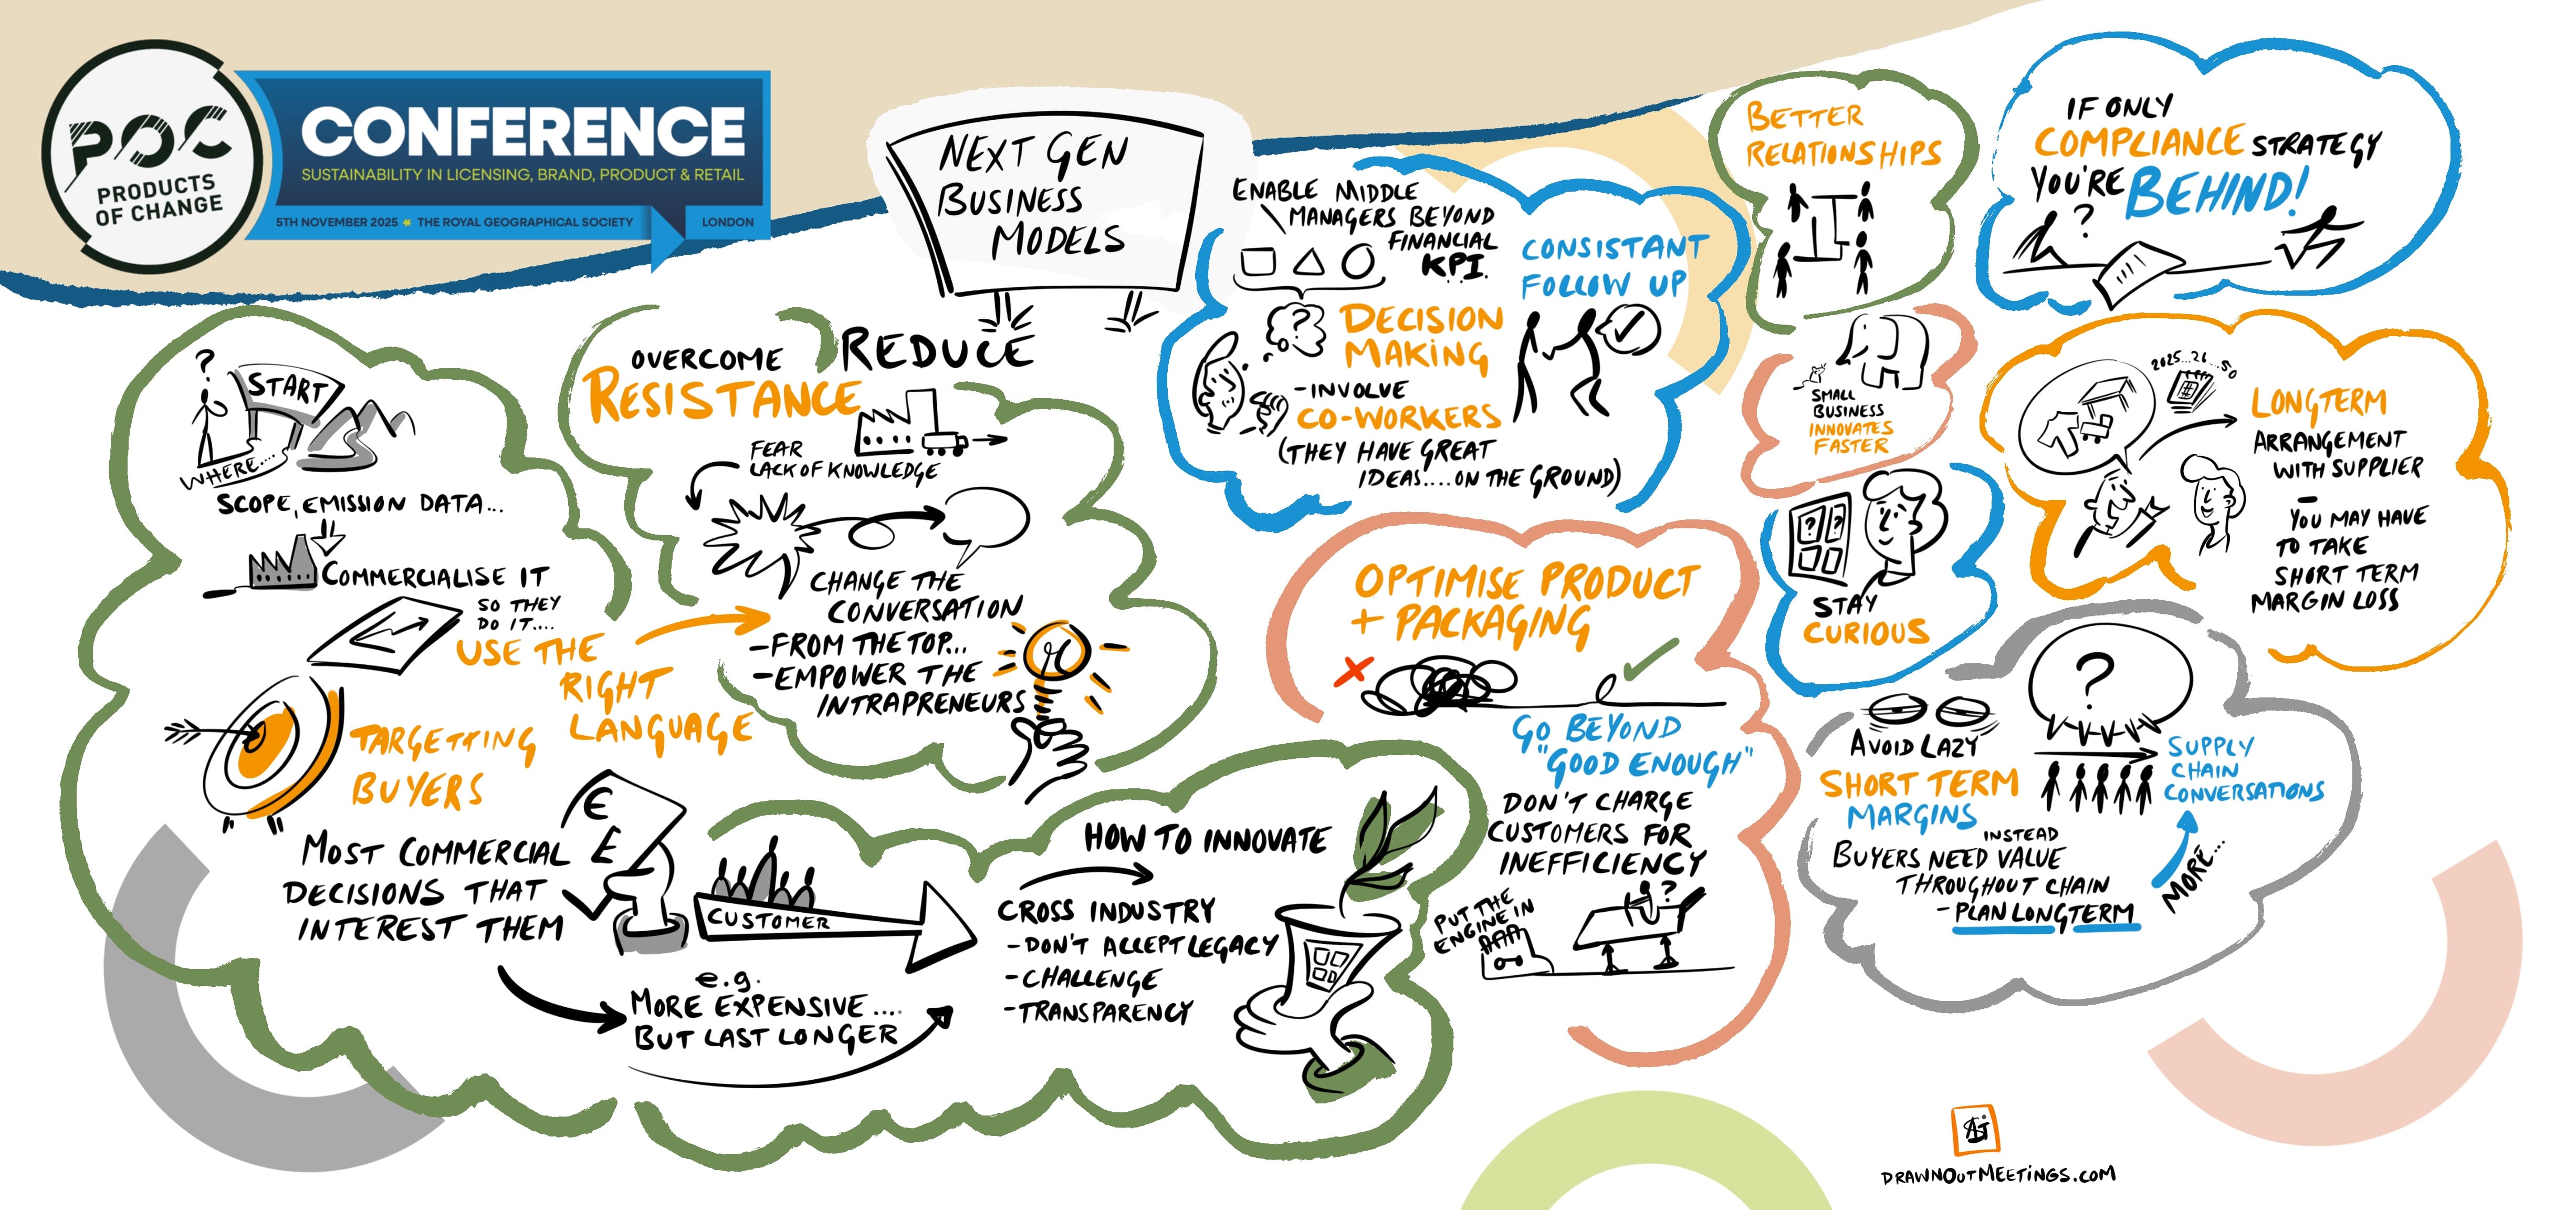 POC
PRODUCTS
OF CHANGE
CONFERENCE
SUSTAINABILITY IN LICENSING, BRAND, PRODUCT & RETAIL
5TH NOVEMBER 2025 * THE ROYAL GEOGRAPHICAL SOCIETY
LONDON
NEXT GEN
BUSINESS
MODELS
?
START
WHERE....
SCOPE, EMISSION DATA...
COMMERCIALISE IT
SO THEY
DO IT....
USE THE
RIGHT
LANGUAGE
TARGETTING
BUYERS
MOST COMMERCIAL
DECISIONS THAT
INTEREST THEM
€
£
CUSTOMER
e.g.
MORE EXPENSIVE....
BUT LAST LONGER
OVERCOME
RESISTANCE
REDUCE
FEAR
LACK OF KNOWLEDGE
CHANGE THE
CONVERSATION
-FROM THE TOP...
-EMPOWER THE
INTRAPRENEURS
HOW TO INNOVATE
CROSS INDUSTRY
-DON'T ACCEPT LEGACY
-CHALLENGE
-TRANSPARENCY
ENABLE MIDDLE
MANAGERS BEYOND
FINANCIAL
KPI.
?
DECISION
MAKING
-INVOLVE
CO-WORKERS
(THEY HAVE GREAT
IDEAS....ON THE GROUND)
CONSISTANT
FOLLOW UP
OPTIMISE PRODUCT
+ PACKAGING
GO BEYOND
"GOOD ENOUGH"
DON'T CHARGE
CUSTOMERS FOR
INEFFICIENCY
PUT THE
ENGINE IN
?
BETTER
RELATIONSHIPS
SMALL
BUSINESS
INNOVATES
FASTER
? ?
STAY
CURIOUS
IF ONLY
COMPLIANCE STRATEGY
YOU'RE BEHIND!
?
2025...26...50
LONGTERM
ARRANGEMENT
WITH SUPPLIER
-
YOU MAY HAVE
TO TAKE
SHORT TERM
MARGIN LOSS
AVOID LAZY
SHORT TERM
MARGINS
INSTEAD
BUYERS NEED VALUE
THROUGHOUT CHAIN
-PLAN LONGTERM
?
SUPPLY
CHAIN
CONVERSATIONS
MORE...
DRAWNOUTMEETINGS.COM